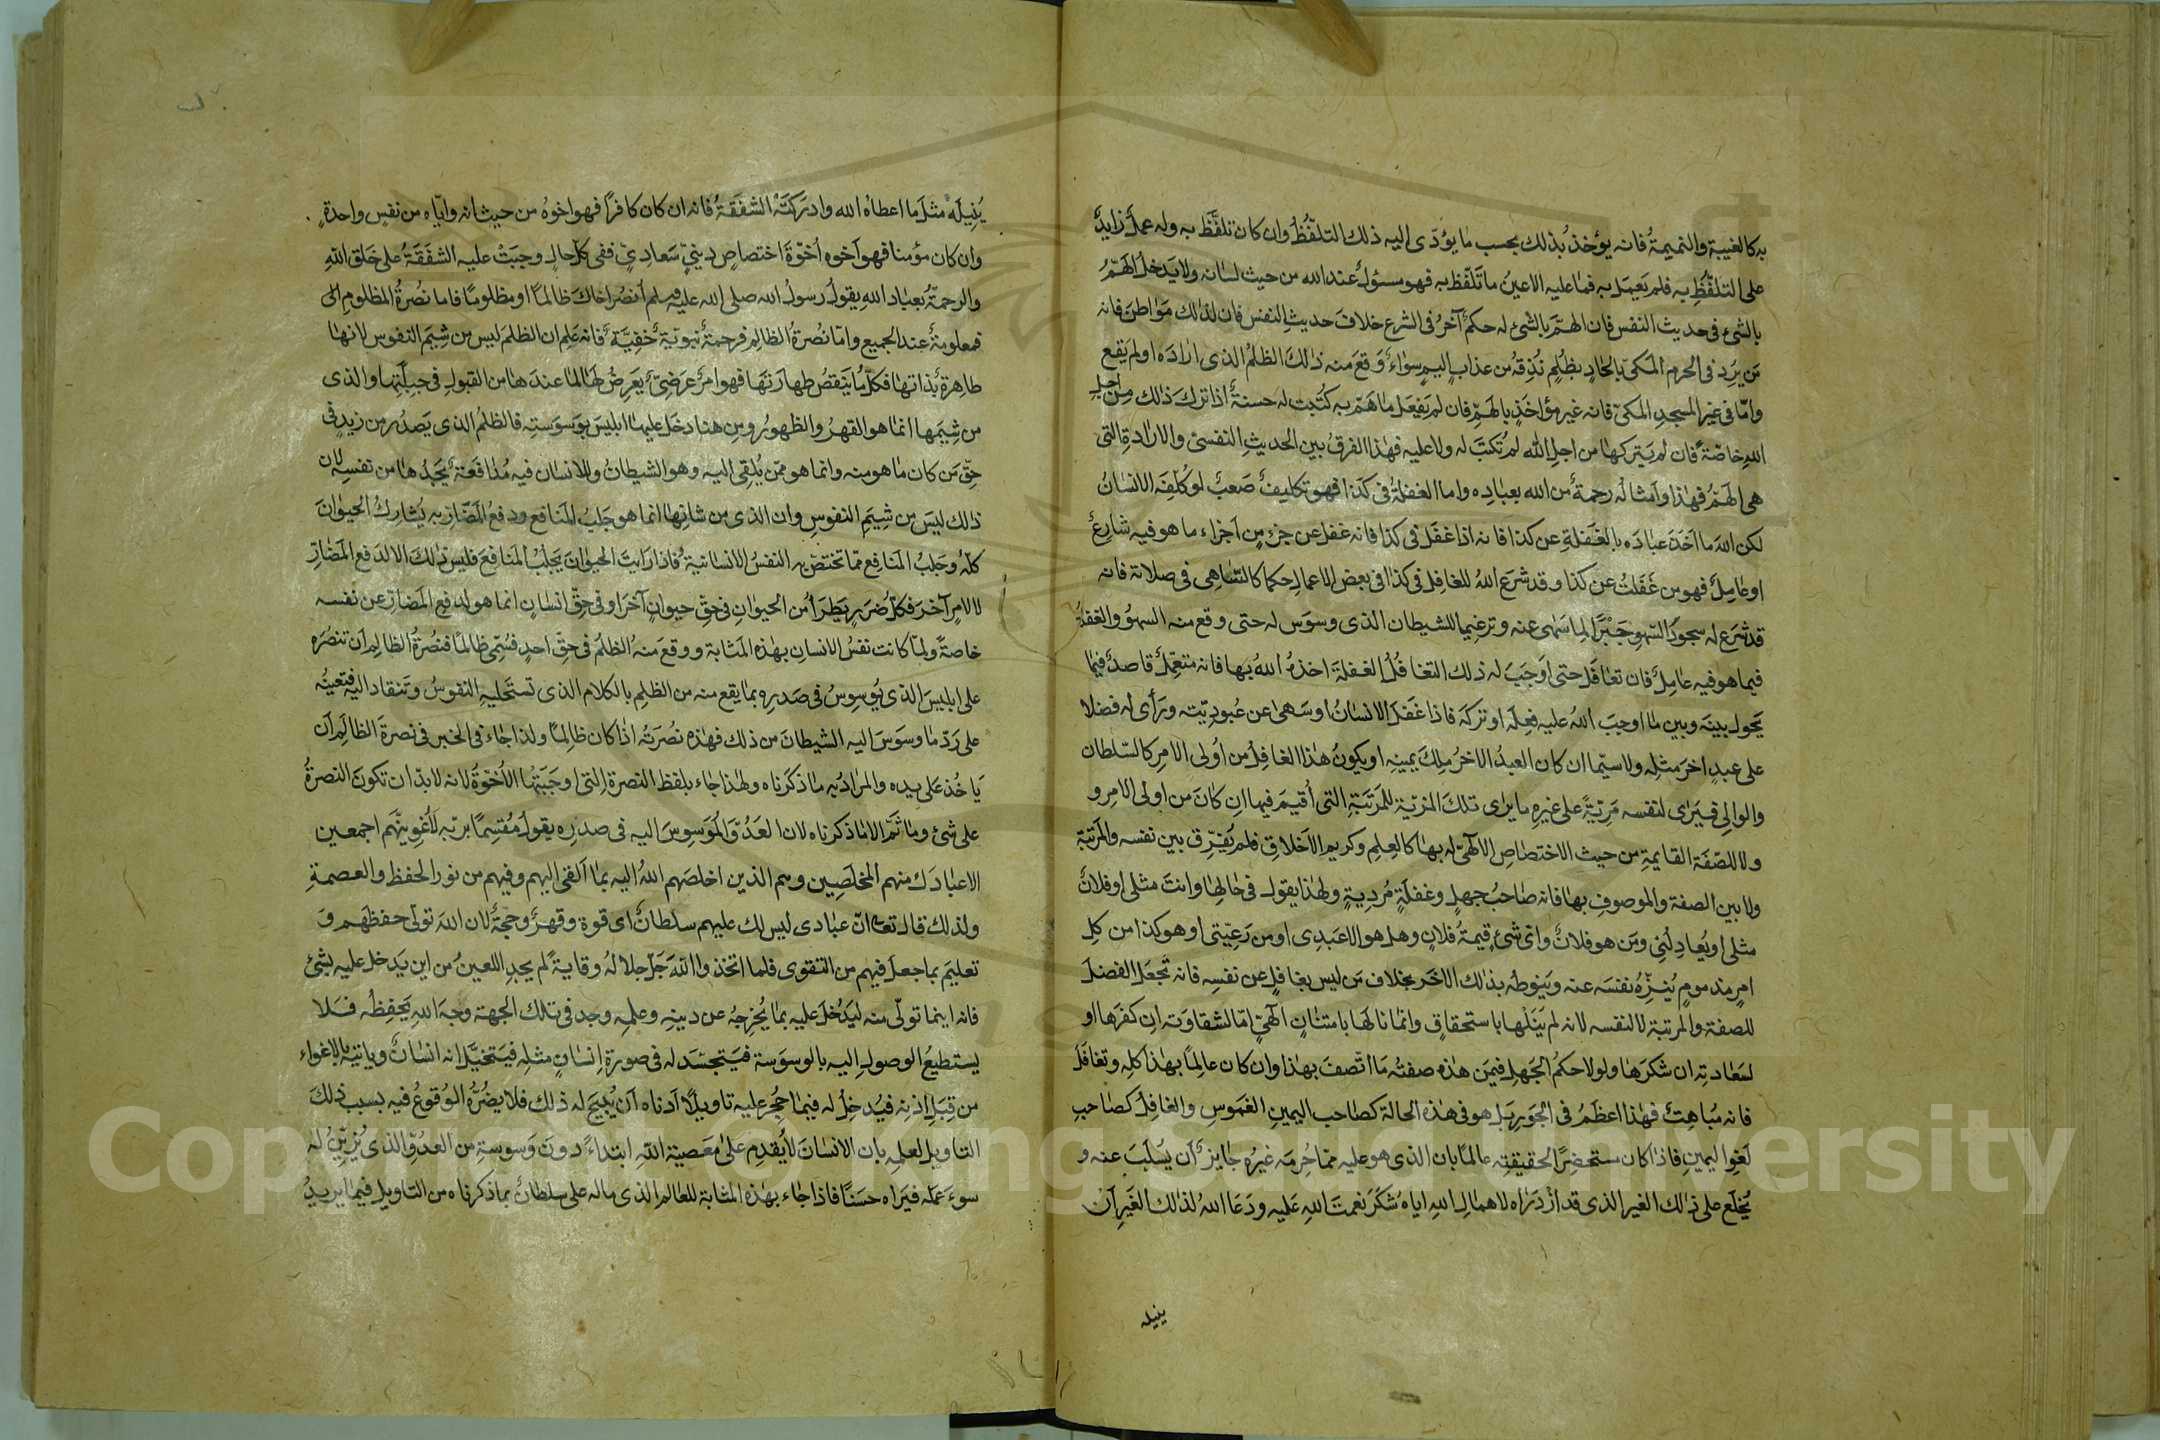 به كالغيبة والنميمة فانه يؤخذ بذلك بحسب ما يؤدى اليه ذلك التلفظ وان كان تلفظ به وله عمل زايد
على التلفظ به فلم يعمل به فما عليه الا عين ما تلفظ به فهو مسئول عند الله من حيث لسانه ولا يدخل الهم
بالشئ فى حديث النفس فان الهم بالشئ له حكم آخر فى الشرع خلاف حديث النفس فان لذلك مواطن فانه
من يرد فى الحرم المكى بالحاد بظلم نذقه من عذاب اليم سواء وقع منه ذلك الظلم الذى اراده او لم يقع
واما فى غير المسجد المكى فانه غير مؤاخذ بالهم فان لم يفعل ما هم به كتبت له حسنة اذا ترك ذلك من اجل
الله خاصة فان لم يتركها من اجل الله لم تكتب له ولا عليه فهذا الفرق بين الحديث النفسى والارادة التى
هى الهم فهذا وامثاله رحمة من الله بعباده واما الغفلة فى كذا فهو تكليف صعب لو كلفه الانسان
لكن الله ما اخذ عباده بالغفلة عن كذا فانه اذا غفل فى كذا فانه غفل عن جزء من اجزاء ما هو فيه شارع
او عامل فهو من غفلت عن كذا وقد شرع الله للغافل فى كذا فى بعض الاعمال حكما كالساهى فى صلاته فانه
قد شرع له سجود السهو جبرا لما سهى عنه وترغيما للشيطان الذى وسوس له حتى وقع منه السهو والغفلة
فيما هو فيه عامل فان تغافل حتى اوجب له ذلك التغافل الغفلة اخذه الله بها فانه متعمل قاصد فيما
يحول بينه وبين ما اوجب الله عليه فعله او تركه فاذا غفل الانسان او سهى عن عبوديته ورأى له فضلا
على عبد اخر مثله ولا سيما ان كان العبد الاخر ملك يمينه او يكون هذا الغافل من اولى الامر كالسلطان
والوالى فيرى لنفسه مزية على غيره ما يرى تلك المزية للمرتبة التى أقيم فيها ان كان من اولى الامر و
ولا للصفة القايمة من حيث الاختصاص الالهى له بها كالعلم وكريم الاخلاق فلم يفرق بين نفسه والمرتبة
ولا بين الصفة والموصوف بها فانه صاحب جهل وغفلة مردية ولهذا يقول فى حالها وانت مثلى او فلان
مثلى او يعادلنى ومن هو فلان واى شئ قيمة فلان وهل هو الا عبدى او من رعيتى او هو كذا من كل
امر مذموم ينزه نفسه عنه وينوطه بذلك الاخر بخلاف من ليس بغافل عن نفسه فانه تجعل الفضل
للصفة والمرتبة لا لنفسه لانه لم ينلها باستحقاق وانما نالها بامتنان الهى اما لشقاوته ان كفرها او
لسعادته ان شكرها ولولا حكم الجهل فيمن هذه صفته ما اتصف بهذا وان كان عالما بهذا كله وتغافل
فانه مباهت فهذا اعظم فى الجور بل هو فى هذه الحالة كصاحب اليمين الغموس والغافل كصاحب
لغو اليمين فاذا كان مستحضرا لحقيقته عالما بان الذى هو عليه مما حرمه غيره جايز أن يسلب عنه و
يخلع على ذلك الغير الذى قد ازدراه لاهمال الله اياه شكر نعمت الله عليه ودعا الله لذلك الغير أن
ينيله
ينيله مثل ما اعطاه الله وادركته الشفقة فانه ان كان كافرا فهو اخوه من حيث انه واياه من نفس واحدة
وان كان مؤمنا فهو أخوه أخوة اختصاص دينى سعادى ففى كل حال وجبت عليه الشفقة على خلق الله
والرحمة بعباد الله يقول رسول الله صلى الله عليه وسلم أنصر اخاك ظالما او مظلوما فاما نصرة المظلوم
فمعلومة عند الجميع واما نصرة الظالم فرحمة نبوية خفية فانه علم ان الظلم ليس من شيم النفوس لانها
طاهرة بذاتها فكل ما ينقص طهارتها فهو امر عرضى يعرض لها لما عندها من القبول فى جبلتها والذى
من شيمها انما هو القهر والظهور ومن هنا دخل عليها ابليس بوسوسته فالظلم الذى يصدر من زيد فى
حق من كان ما هو منه وانما هو ممن يلقى اليه وهو الشيطان وللانسان فيه مدافعة يجدها من نفسه لان
ذلك ليس من شيم النفوس وان الذى من شانها انما هو جلب المنافع ودفع المضار به يشارك الحيوان
كله وجلب المنافع مما تختص به النفس الانسانية فاذا رايت الحيوان يجلب المنافع فليس ذلك الا لدفع المضار
لا لامر آخر فكل ضرر يطرأ من الحيوان فى حق حيوان آخر او فى حق انسان انما هو لدفع المضار عن نفسه
خاصة ولما كانت نفس الانسان بهذه المثابة ووقع منه الظلم فى حق احد فسمى ظالما فنصرة الظالم أن تنصره
على ابليس الذى يوسوس فى صدره بما يقع منه من الظلم بالكلام الذى تستحليه النفوس وتنقاد اليه فتعينه
على رد ما وسوس اليه الشيطان من ذلك فهذه نصرته اذا كان ظالما ولذا جاء فى الخبر فى نصرة الظالم أن
ياخذ على يده والمراد به ما ذكرناه ولهذا جاء بلفظ النصرة التى اوجبتها الاخوة لانه لا بد ان تكون النصرة
على شئ وما ثم الا ما ذكرناه لان العدو الموسوس اليه فى صدره يقول مقسما بربه لاغوينهم اجمعين
الا عبادك منهم المخلصين وهم الذين اخلصهم الله اليه بما القى اليهم وفيهم من نور الحفظ والعصمة
ولذلك قال تعا ان عبادى ليس لك عليهم سلطان اى قوة وقهر وحجة لان الله تولى حفظهم و
تعليم بما جعل فيهم من التقوى فلما اتخذوا الله جل جلاله وقاية لم يجد اللعين من اين يدخل عليه بشئ
فانه اينما تولى منه ليدخل عليه بما يخرجه عن دينه وعلمه وجد فى تلك الجهة وجه الله يحفظه فلا
يستطيع الوصول اليه بالوسوسة فيتجسد له فى صورة انسان مثله فيتخيل انه انسان وياتيه بالاغواء
من قبل اذنه فيدخل له فيما حجر عليه تاويلا أدناه أن يبيح له ذلك فلا يضره الوقوع فيه بسبب ذلك
التاويل لعلمه بان الانسان لا يقدم على معصية الله ابتداء دون وسوسة من العدو الذى يزين له
سوء عمله فيراه حسنا فاذا جاء بهذه المثابة للعالم الذى ماله على سلطان بما ذكرناه من التاويل فيما يريد
Copyright © King Saud University